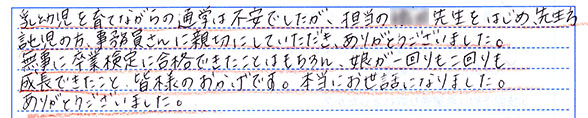 乳幼児を育てながらの通学は不安でしたが、担当の 先生をはじめ、先生方
託児の方、事務員さんに親切にしていただき、ありがとうございました。
無事に卒業検定に合格できたことはもちろん、娘が一回りも二回りも
成長できたこと、皆様のおかげです。本当にお世話になりました。
ありがとうございました。